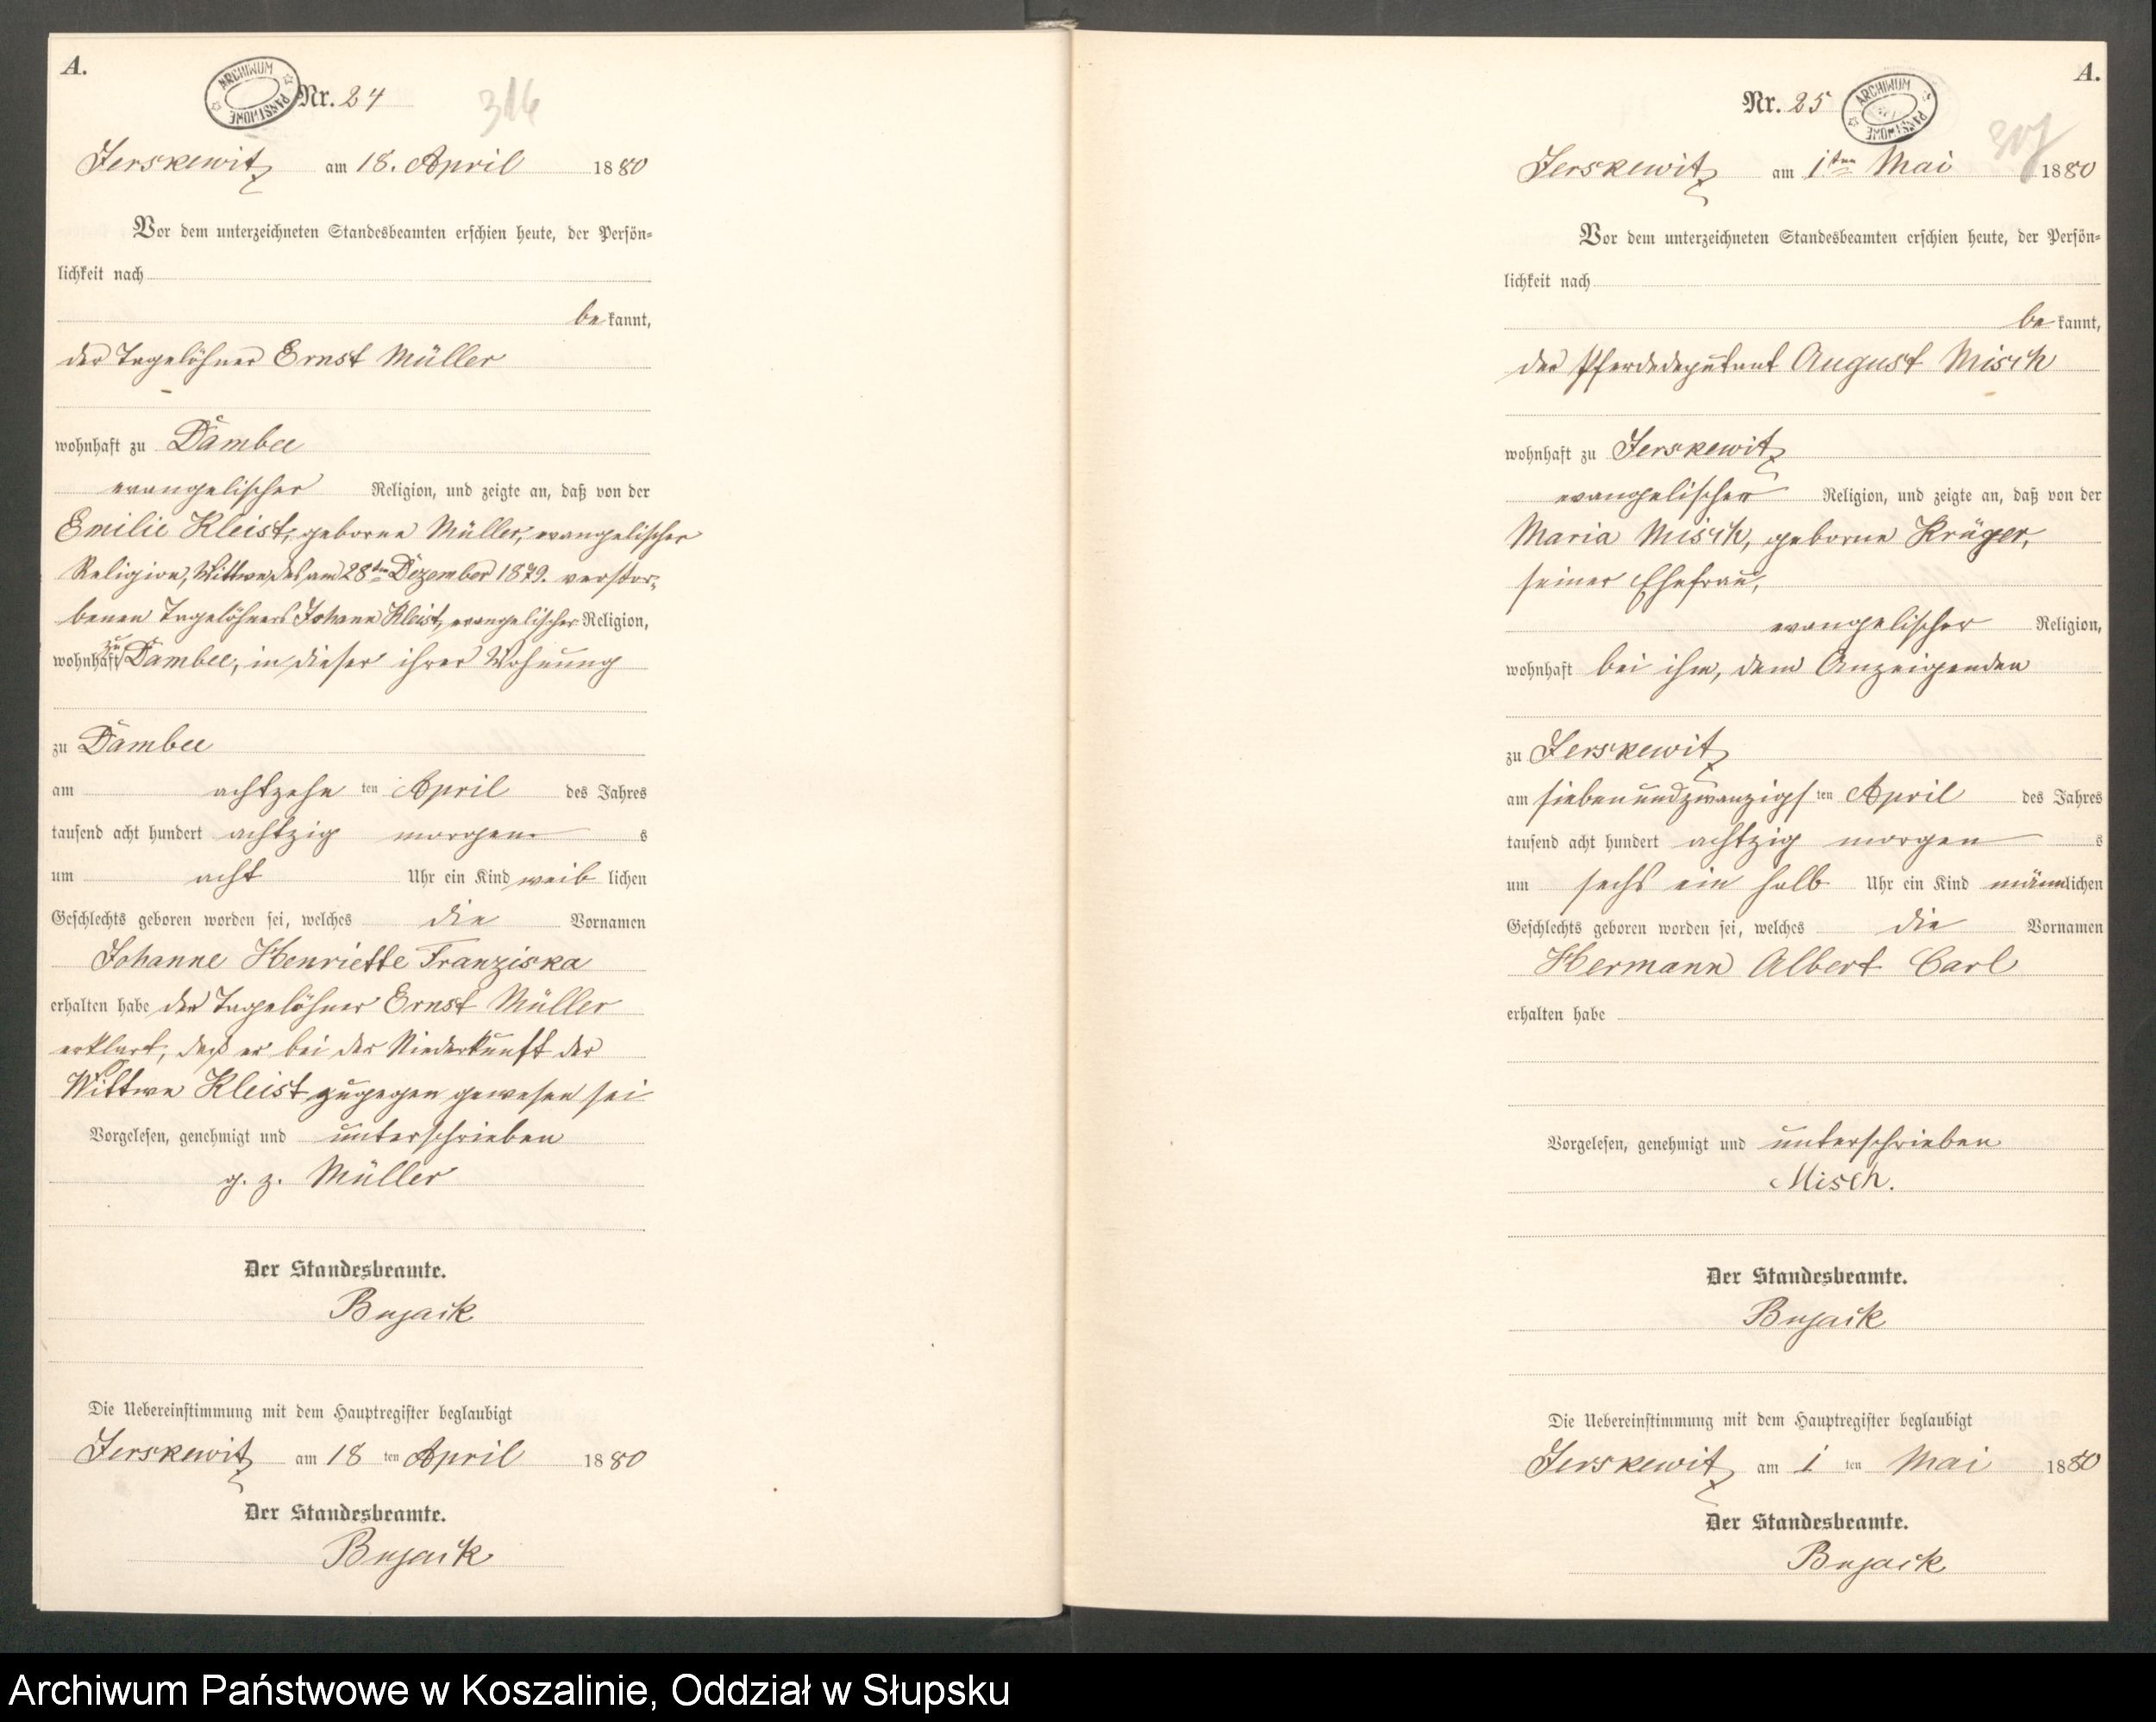 A.
ARCHIWUM PAŃSTWOWE
Nr. 24
316
Jerskewitz am 18. April 1880
Vor dem unterzeichneten Standesbeamten erschien heute, der Persön-
lichkeit nach
be kannt,
der Tagelöhner Ernst Müller
wohnhaft zu Dambee
evangelischer Religion, und zeigte an, daß von der
Emilie Kleist, geborne Müller, evangelischer
Religion, Wittwe, des am 28ten Dezember 1879. verstor-
benen Tagelöhners Johann Kleist, evangelischer Religion,
wohnhaft zu Dambee, in dieser ihrer Wohnung
zu Dambee
am achtzehn ten April des Jahres
tausend acht hundert achtzig morgen s
um acht Uhr ein Kind weib lichen
Geschlechts geboren worden sei, welches die Vornamen
Johanne Henriette Franziska
erhalten habe der Tagelöhner Ernst Müller
erklärt, daß er bei der Niederkunft der
Wittwe Kleist zugegen gewesen sei
Vorgelesen, genehmigt und unterschrieben
g. z. Müller
Der Standesbeamte.
Bujack
Die Uebereinstimmung mit dem Hauptregister beglaubigt
Jerskewitz am 18 ten April 1880
Der Standesbeamte.
Bujack
A.
Nr. 25
ARCHIWUM PAŃSTWOWE
Jerskewitz am 1ten Mai 1880
Vor dem unterzeichneten Standesbeamten erschien heute, der Persön-
lichkeit nach
be kannt,
der Pferdedeputant August Misch
wohnhaft zu Jerskewitz
evangelischer Religion, und zeigte an, daß von der
Maria Misch, geborne Krüger,
seiner Ehefrau,
evangelischer Religion,
wohnhaft bei ihm, dem Anzeigenden
zu Jerskewitz
am siebenundzwanzigs ten April des Jahres
tausend acht hundert achtzig morgen s
um sechs ein halb Uhr ein Kind männlichen
Geschlechts geboren worden sei, welches die Vornamen
Hermann Albert Carl
erhalten habe
Vorgelesen, genehmigt und unterschrieben
Misch.
Der Standesbeamte.
Bujack
Die Uebereinstimmung mit dem Hauptregister beglaubigt
Jerskewitz am 1 ten Mai 1880
Der Standesbeamte.
Bujack
Archiwum Państwowe w Koszalinie, Oddział w Słupsku